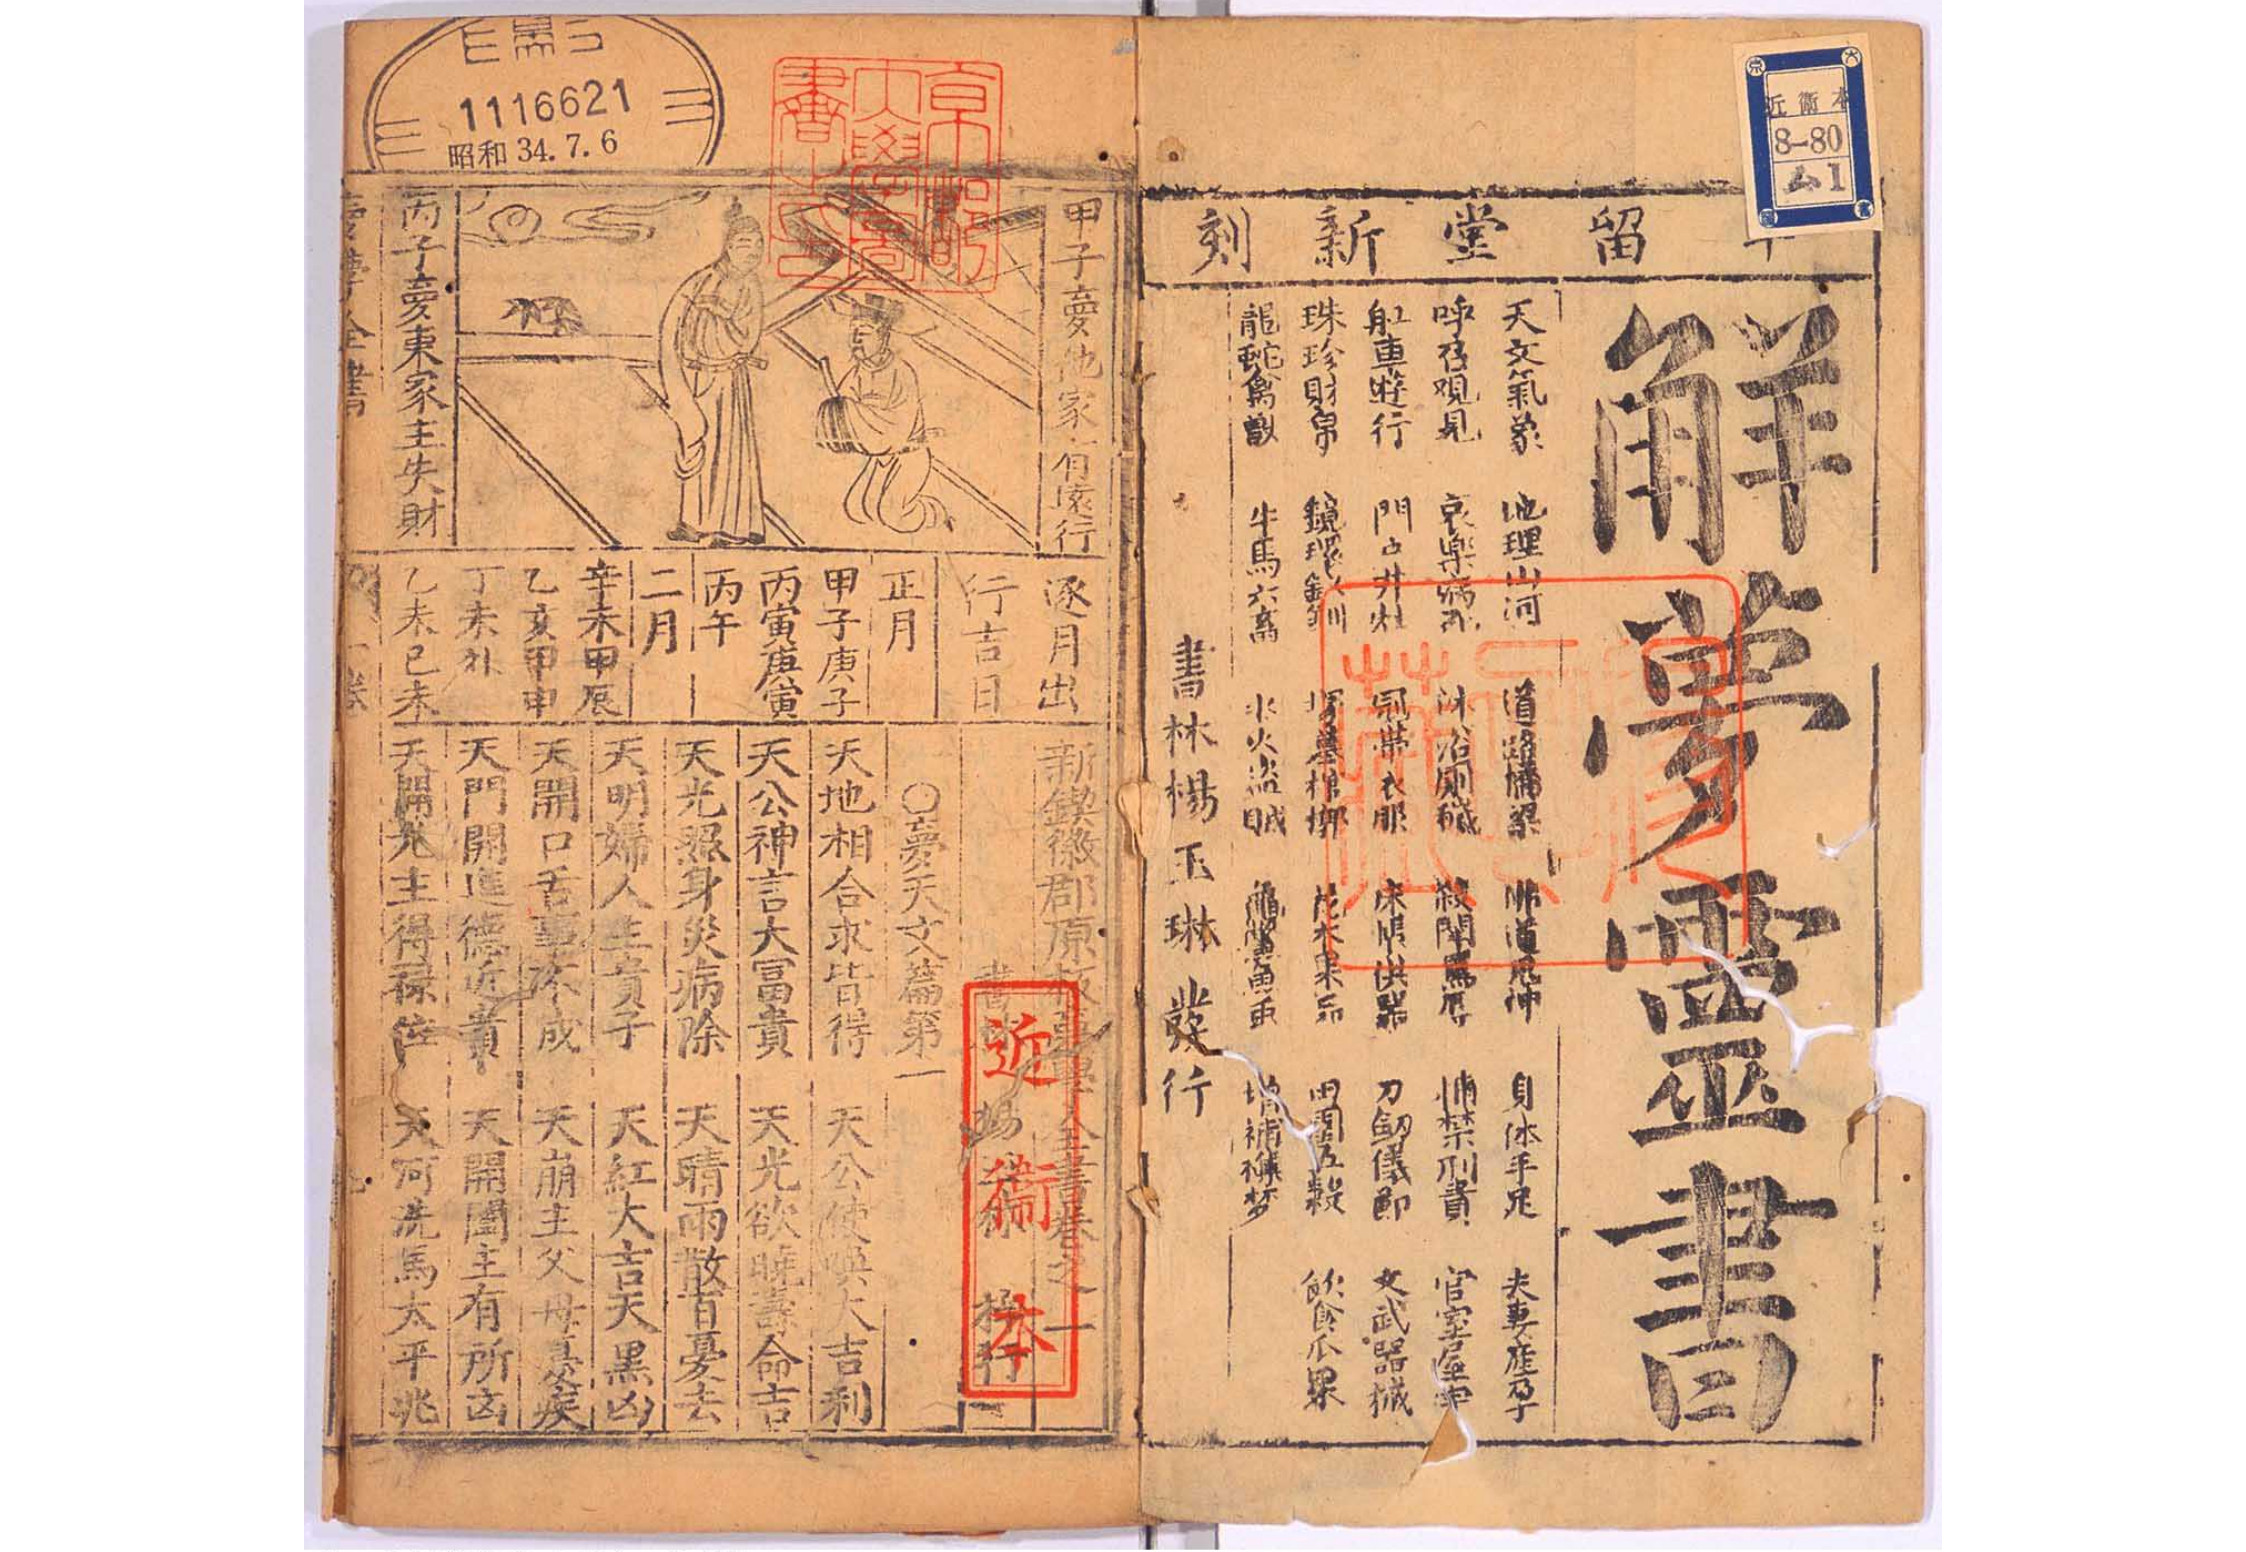 近衛本
8-80
ム1
留堂新刻
解夢靈書
天文氣象 地理山河 道路橋梁 佛道鬼神 身体手足 夫妻產孕
呼召觀見 哀樂病死 沐浴厠穢 殺鬪罵辱 捕禁刑責 官室屋宇
舡車遊行 門戶井灶 冠帶衣服 床帳供器 刀劔儀節 文武器械
珠珍財帛 鏡環釵釧 塚墓棺槨 花木果品 田園五穀 飲食瓜果
龍蛇禽獸 牛馬六畜 水火盜賊 龜鱉魚虫 增補禳梦
書林楊玉琳發行
1116621
昭和34.7.6
京都
大學圖
書之印
甲子夢他家有遠行
丙子夢東家主失財
逐月出
行吉日
正月
甲子庚子
丙寅庚寅
丙午
二月
辛未甲辰
乙亥甲申
丁未外
乙未己未
新鍥徽郡原板夢學全書卷之一
書林 楊 梓行
近衞本
○夢天文篇第一
天地相合求皆得 天公使喚大吉利
天公神言大冨貴 天光欲曉壽命吉
天光照身災病除 天晴雨散百憂去
天明婦人生貴子 天紅大吉天黑凶
天開口舌事不成 天崩主父母憂疾
天門開進德近貴 天開闔主有所凶
天開光主得祿位 天河洗馬太平兆
夢學全書
一卷